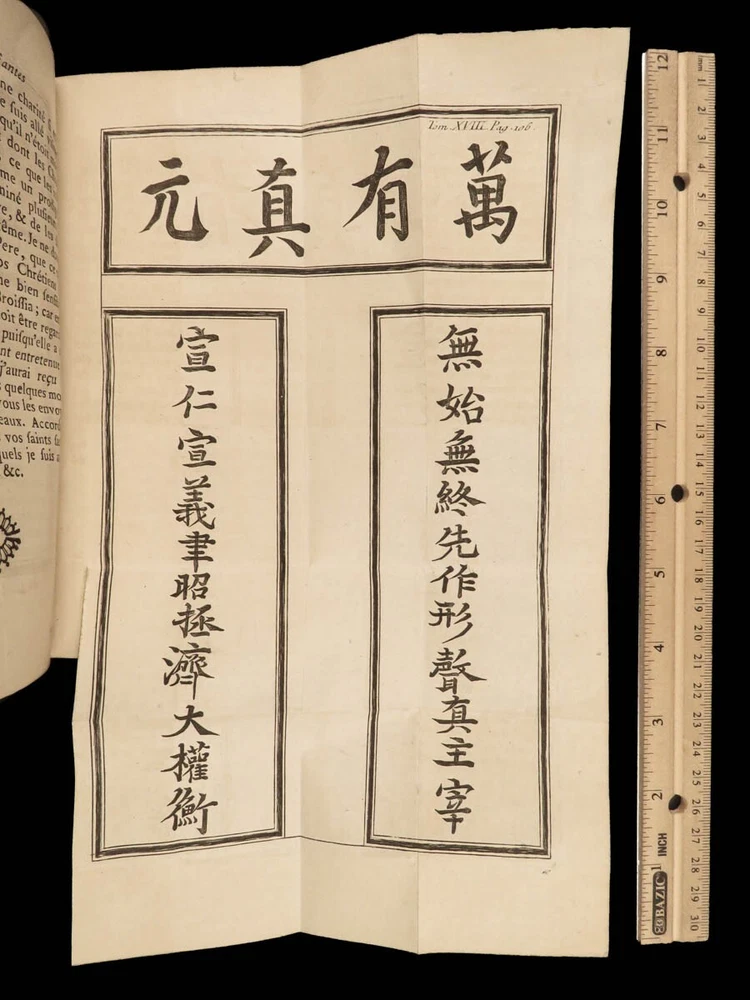 antes
ne charité
e suis allé
qu'il n'étoit
dont les
ce que les
me un
miné plusieu
re, & de
ême. Je ne
Pere, que ce
os Chrétiens
ne bien
Broissia; car
oit être rega
puisqu'elle a
nt entretenue
j'aurai reçu
s quelques mo
vous les envo
eaux. Accord
vos saints
uels je suis a
&c.
Tom. XVIII. Pag. 106.
萬有真元
無始無終先作形聲真主宰
宣仁宣義聿昭拯濟大權衡
12 11 10 9 8 7 6 5 4 3 2 1
INCH
BAZIC
mm 1 2 3 4 5 6 7 8 9 10 11 12 13 14 15 16 17 18 19 20 21 22 23 24 25 26 27 28 29 30